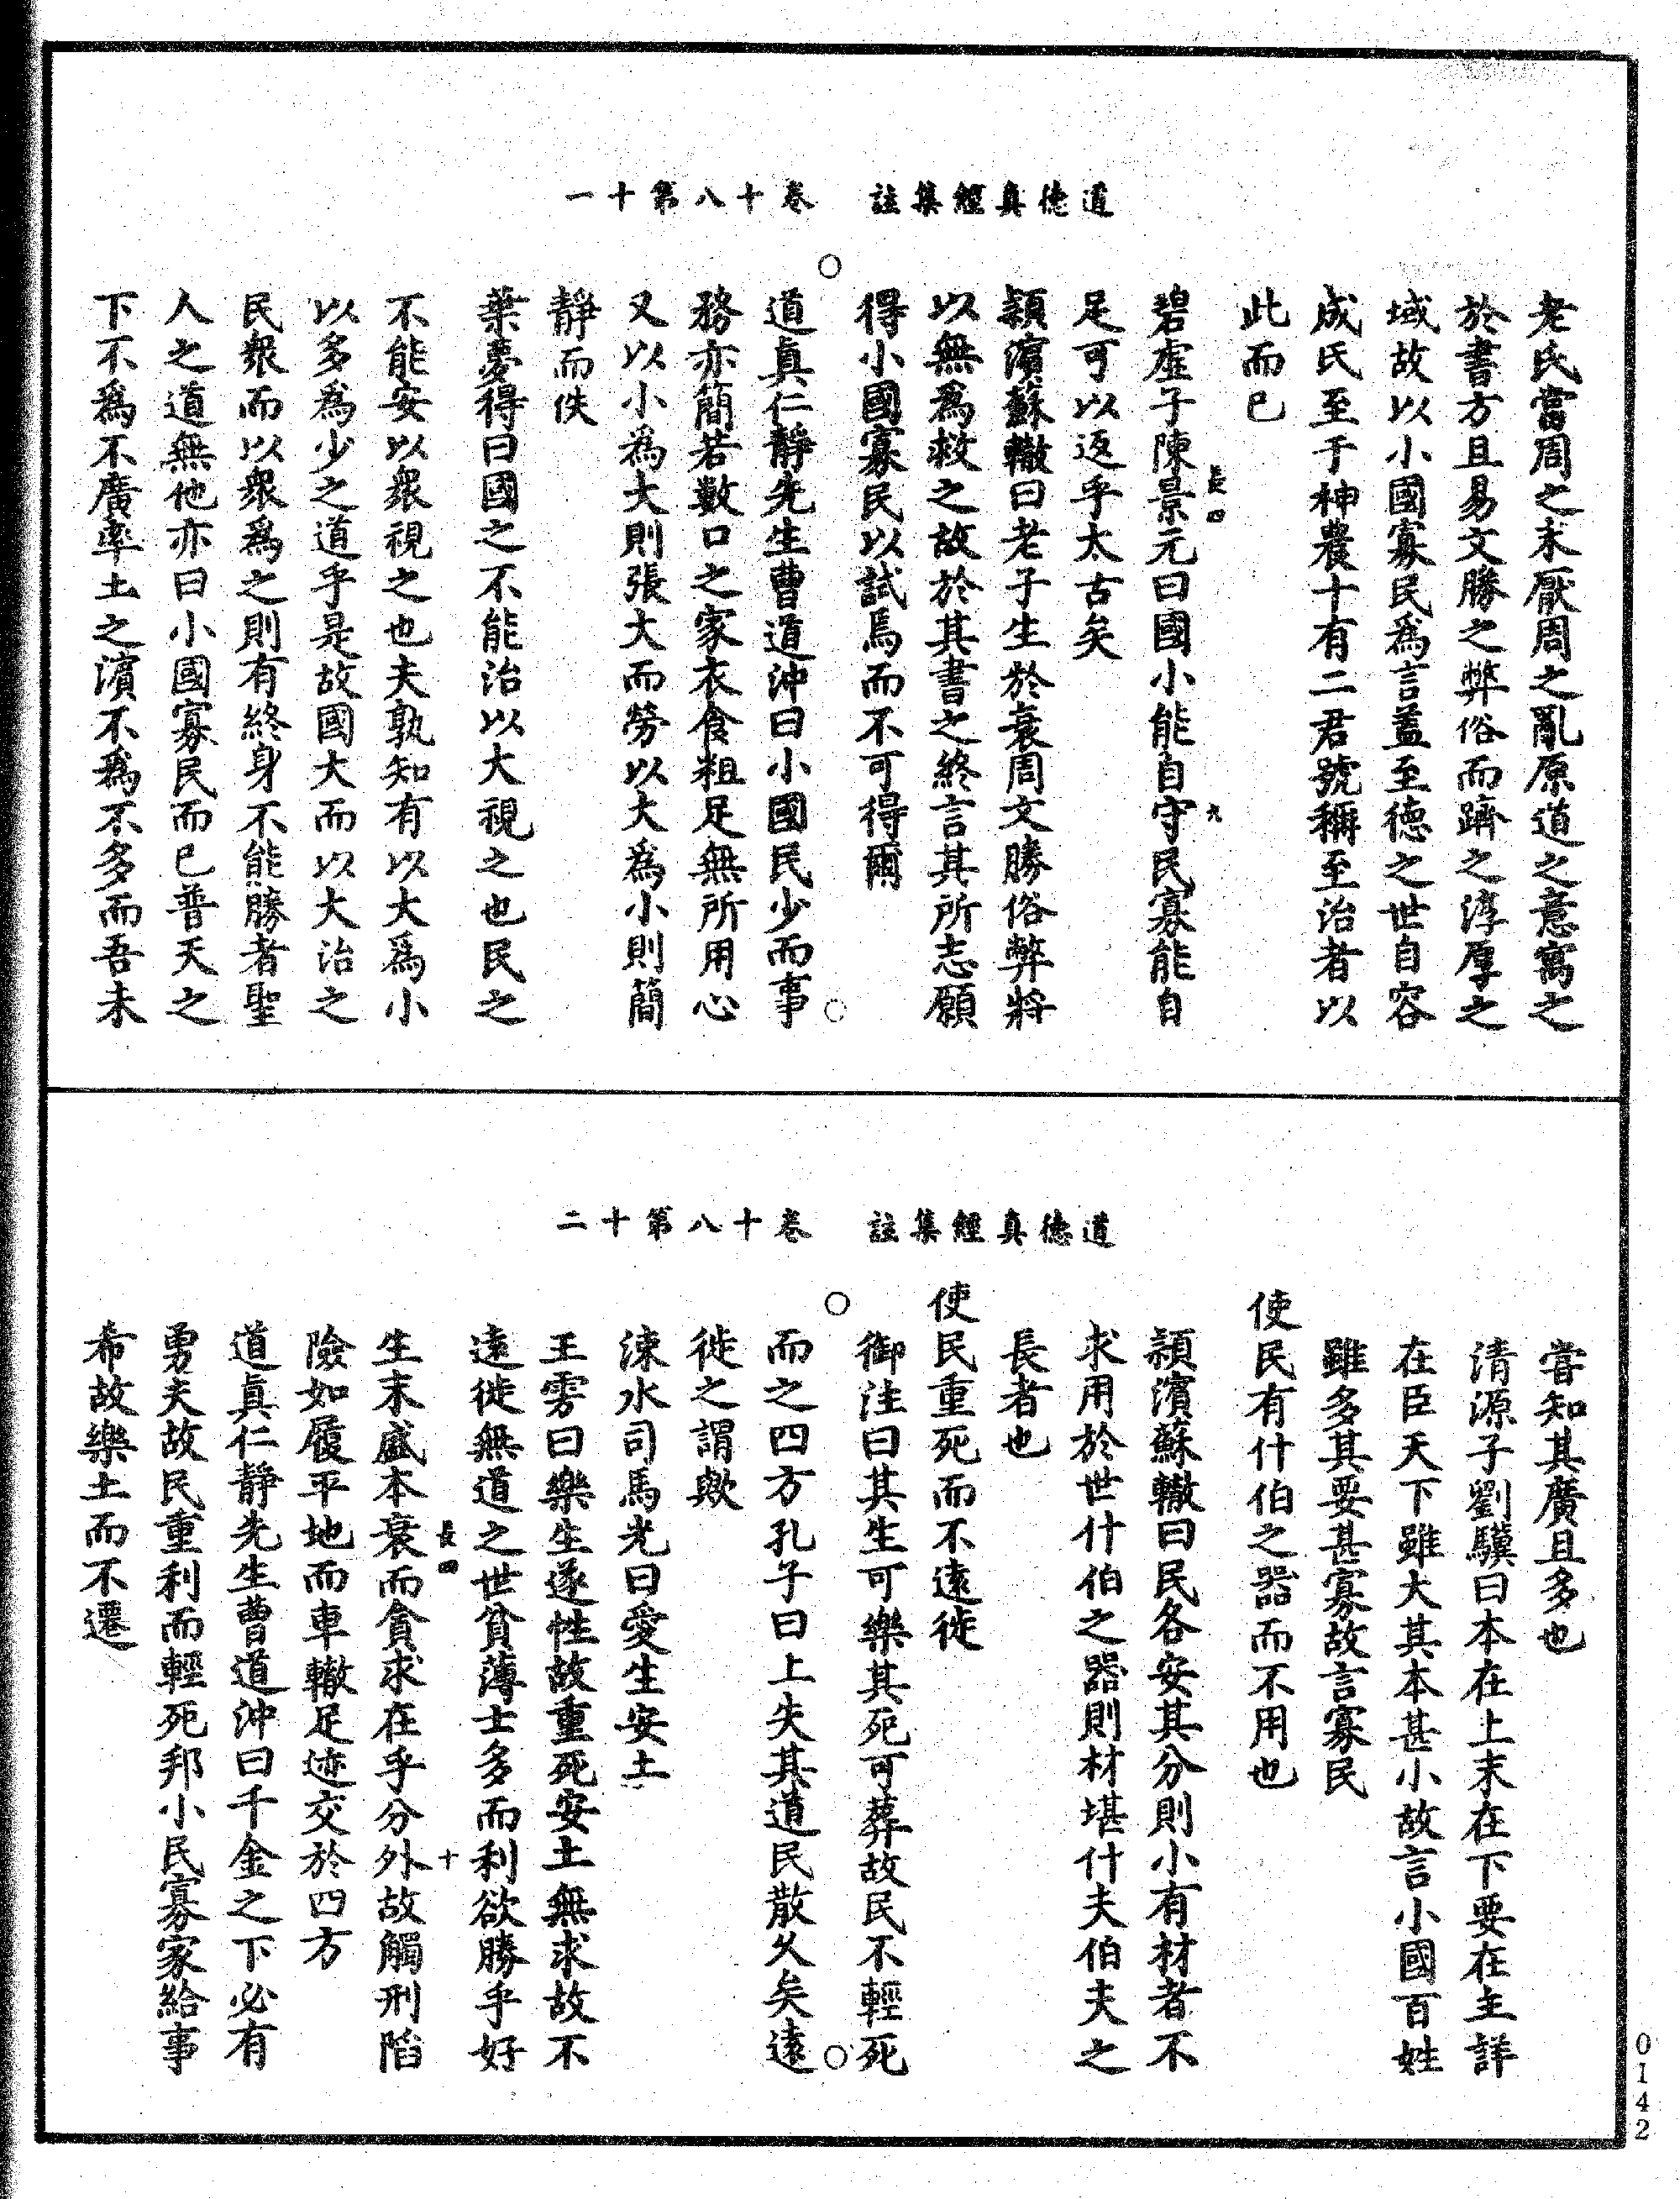 道德真經集註　卷十八第十一
老氏當周之末厭周之亂原道之意寓之
於書方且易文勝之弊俗而躋之淳厚之
域故以小國寡民爲言蓋至德之世自容
成氏至于神農十有二君號稱至治者以
此而已
長四　九
碧虛子陳景元曰國小能自守民寡能自
足可以返乎太古矣
潁濱蘇轍曰老子生於衰周文勝俗弊將
以無爲救之故於其書之終言其所志願
得小國寡民以試焉而不可得爾
道真仁靜先生曹道沖曰小國民少而事
務亦簡若數口之家衣食粗足無所用心
又以小爲大則張大而勞以大爲小則簡
靜而佚
葉夢得曰國之不能治以大視之也民之
不能安以衆視之也夫孰知有以大爲小
以多爲少之道乎是故國大而以大治之
民衆而以衆爲之則有終身不能勝者聖
人之道無他亦曰小國寡民而已普天之
下不爲不廣率土之濱不爲不多而吾未
道德真經集註　卷十八第十二
嘗知其廣且多也
清源子劉驥曰本在上末在下要在主詳
在臣天下雖大其本甚小故言小國百姓
雖多其要甚寡故言寡民
使民有什伯之器而不用也
潁濱蘇轍曰民各安其分則小有材者不
求用於世什伯之器則材堪什夫伯夫之
長者也
使民重死而不遠徙
御注曰其生可樂其死可葬故民不輕死
而之四方孔子曰上失其道民散久矣遠
徙之謂歟
涑水司馬光曰愛生安土
王雱曰樂生遂性故重死安土無求故不
遠徙無道之世貧薄士多而利欲勝乎好
長四　十
生末盛本衰而貪求在乎分外故觸刑陷
險如履平地而車轍足迹交於四方
道真仁靜先生曹道沖曰千金之下必有
勇夫故民重利而輕死邦小民寡家給事
希故樂土而不遷
0142